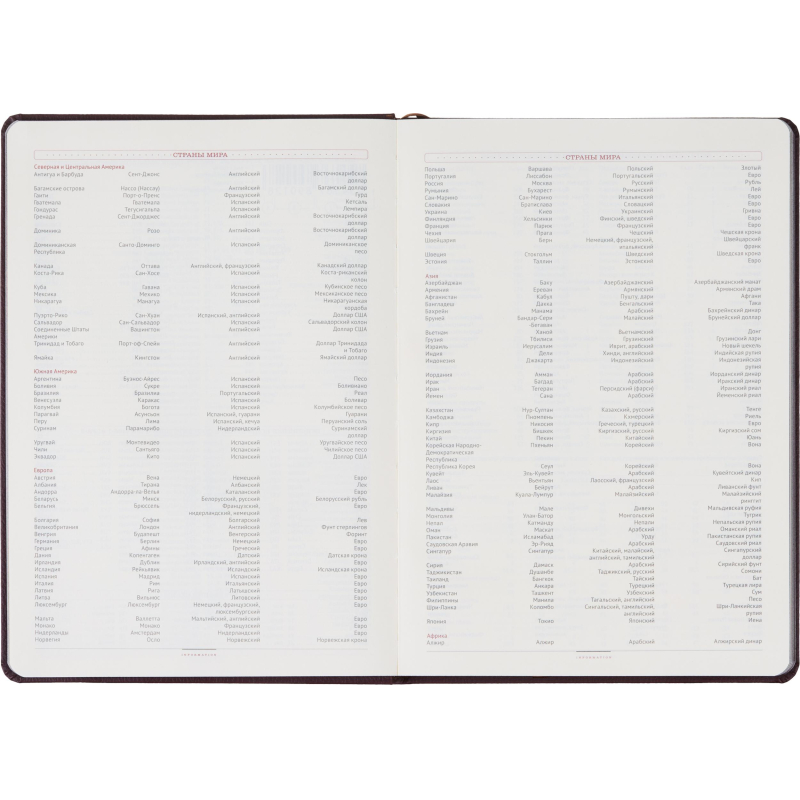 СТРАНЫ МИРА
Северная и Центральная Америка
Антигуа и Барбуда Сент-Джонс Английский Восточнокарибский
доллар
Багамские острова Нассо (Нассау) Английский Багамский доллар
Гаити Порт-о-Пренс Французский Гурд
Гватемала Гватемала Испанский Кетсаль
Гондурас Тегусигальпа Испанский Лемпира
Гренада Сент-Джорджес Английский Восточнокарибский
доллар
Доминика Розо Английский Восточнокарибский
доллар
Доминиканская Санто-Доминго Испанский Доминиканское
Республика песо
Канада Оттава Английский, французский Канадский доллар
Коста-Рика Сан-Хосе Испанский Коста-риканский
колон
Куба Гавана Испанский Кубинское песо
Мексика Мехико Испанский Мексиканское песо
Никарагуа Манагуа Испанский Никарагуанская
кордоба
Пуэрто-Рико Сан-Хуан Испанский, английский Доллар США
Сальвадор Сан-Сальвадор Испанский Сальвадорский колон
Соединенные Штаты Вашингтон Английский Доллар США
Америки
Тринидад и Тобаго Порт-оф-Спейн Английский Доллар Тринидада
и Тобаго
Ямайка Кингстон Английский Ямайский доллар
Южная Америка
Аргентина Буэнос-Айрес Испанский Песо
Боливия Сукре Испанский Боливиано
Бразилия Бразилиа Португальский Реал
Венесуэла Каракас Испанский Боливар
Колумбия Богота Испанский Колумбийское песо
Парагвай Асунсьон Испанский, гуарани Гуарани
Перу Лима Испанский, кечуа Перуанский соль
Суринам Парамарибо Нидерландский Суринамский
доллар
Уругвай Монтевидео Испанский Уругвайское песо
Чили Сантьяго Испанский Чилийское песо
Эквадор Кито Испанский Доллар США
Европа
Австрия Вена Немецкий Евро
Албания Тирана Албанский Лек
Андорра Андорра-ла-Велья Каталанский Евро
Беларусь Минск Белорусский, русский Белорусский рубль
Бельгия Брюссель Французский, Евро
нидерландский, немецкий
Болгария София Болгарский Лев
Великобритания Лондон Английский Фунт стерлингов
Венгрия Будапешт Венгерский Форинт
Германия Берлин Немецкий Евро
Греция Афины Греческий Евро
Дания Копенгаген Датский Датская крона
Ирландия Дублин Ирландский, английский Евро
Исландия Рейкьявик Исландский Исландская крона
Испания Мадрид Испанский Евро
Италия Рим Итальянский Евро
Латвия Рига Латышский Евро
Литва Вильнюс Литовский Евро
Люксембург Люксембург Немецкий, французский, Евро
люксембургский
Мальта Валлетта Мальтийский, английский Евро
Монако Монако Французский Евро
Нидерланды Амстердам Нидерландский Евро
Норвегия Осло Норвежский Норвежская крона
СТРАНЫ МИРА
Польша Варшава Польский Злотый
Португалия Лиссабон Португальский Евро
Россия Москва Русский Рубль
Румыния Бухарест Румынский Лей
Сан-Марино Сан-Марино Итальянский Евро
Словакия Братислава Словацкий Евро
Украина Киев Украинский Гривна
Финляндия Хельсинки Финский, шведский Евро
Франция Париж Французский Евро
Чехия Прага Чешский Чешская крона
Швейцария Берн Немецкий, французский, Швейцарский
итальянский франк
Швеция Стокгольм Шведский Шведская крона
Эстония Таллин Эстонский Евро
Азия
Азербайджан Баку Азербайджанский Азербайджанский манат
Армения Ереван Армянский Армянский драм
Афганистан Кабул Пушту, дари Афгани
Бангладеш Дакка Бенгальский Така
Бахрейн Манама Арабский Бахрейнский динар
Бруней Бандар-Сери- Малайский Брунейский доллар
Бегаван
Вьетнам Ханой Вьетнамский Донг
Грузия Тбилиси Грузинский Грузинский лари
Израиль Иерусалим Иврит, арабский Новый шекель
Индия Дели Хинди, английский Индийская рупия
Индонезия Джакарта Индонезийский Индонезийская
рупия
Иордания Амман Арабский Иорданский динар
Ирак Багдад Арабский Иракский динар
Иран Тегеран Персидский (фарси) Иранский риал
Йемен Сана Арабский Йеменский риал
Казахстан Нур-Султан Казахский, русский Тенге
Камбоджа Пномпень Кхмерский Риель
Кипр Никосия Греческий, турецкий Евро
Киргизия Бишкек Киргизский, русский Киргизский сом
Китай Пекин Китайский Юань
Корейская Народно- Пхеньян Корейский Вона
Демократическое
Республика
Республика Корея Сеул Корейский Вона
Кувейт Эль-Кувейт Арабский Кувейтский динар
Лаос Вьентьян Лаосский, французский Кип
Ливан Бейрут Арабский Ливанский фунт
Малайзия Куала-Лумпур Малайзийский Малайзийский
ринггит
Мальдивы Мале Дивехи Мальдивская руфия
Монголия Улан-Батор Монгольский Тугрик
Непал Катманду Непали Непальская рупия
Оман Маскат Арабский Оманский риал
Пакистан Исламабад Урду Пакистанская рупия
Саудовская Аравия Эр-Рияд Арабский Саудовский риал
Сингапур Сингапур Китайский, малайский, Сингапурский
английский, тамильский доллар
Сирия Дамаск Арабский Сирийский фунт
Таджикистан Душанбе Таджикский, русский Сомони
Таиланд Бангкок Тайский Бат
Турция Анкара Турецкий Турецкая лира
Узбекистан Ташкент Узбекский Сум
Филиппины Манила Тагальский, английский Песо
Шри-Ланка Коломбо Сингальский, тамильский, Шри-Ланкийская
английский рупия
Япония Токио Японский Йена
Африка
Алжир Алжир Арабский Алжирский динар